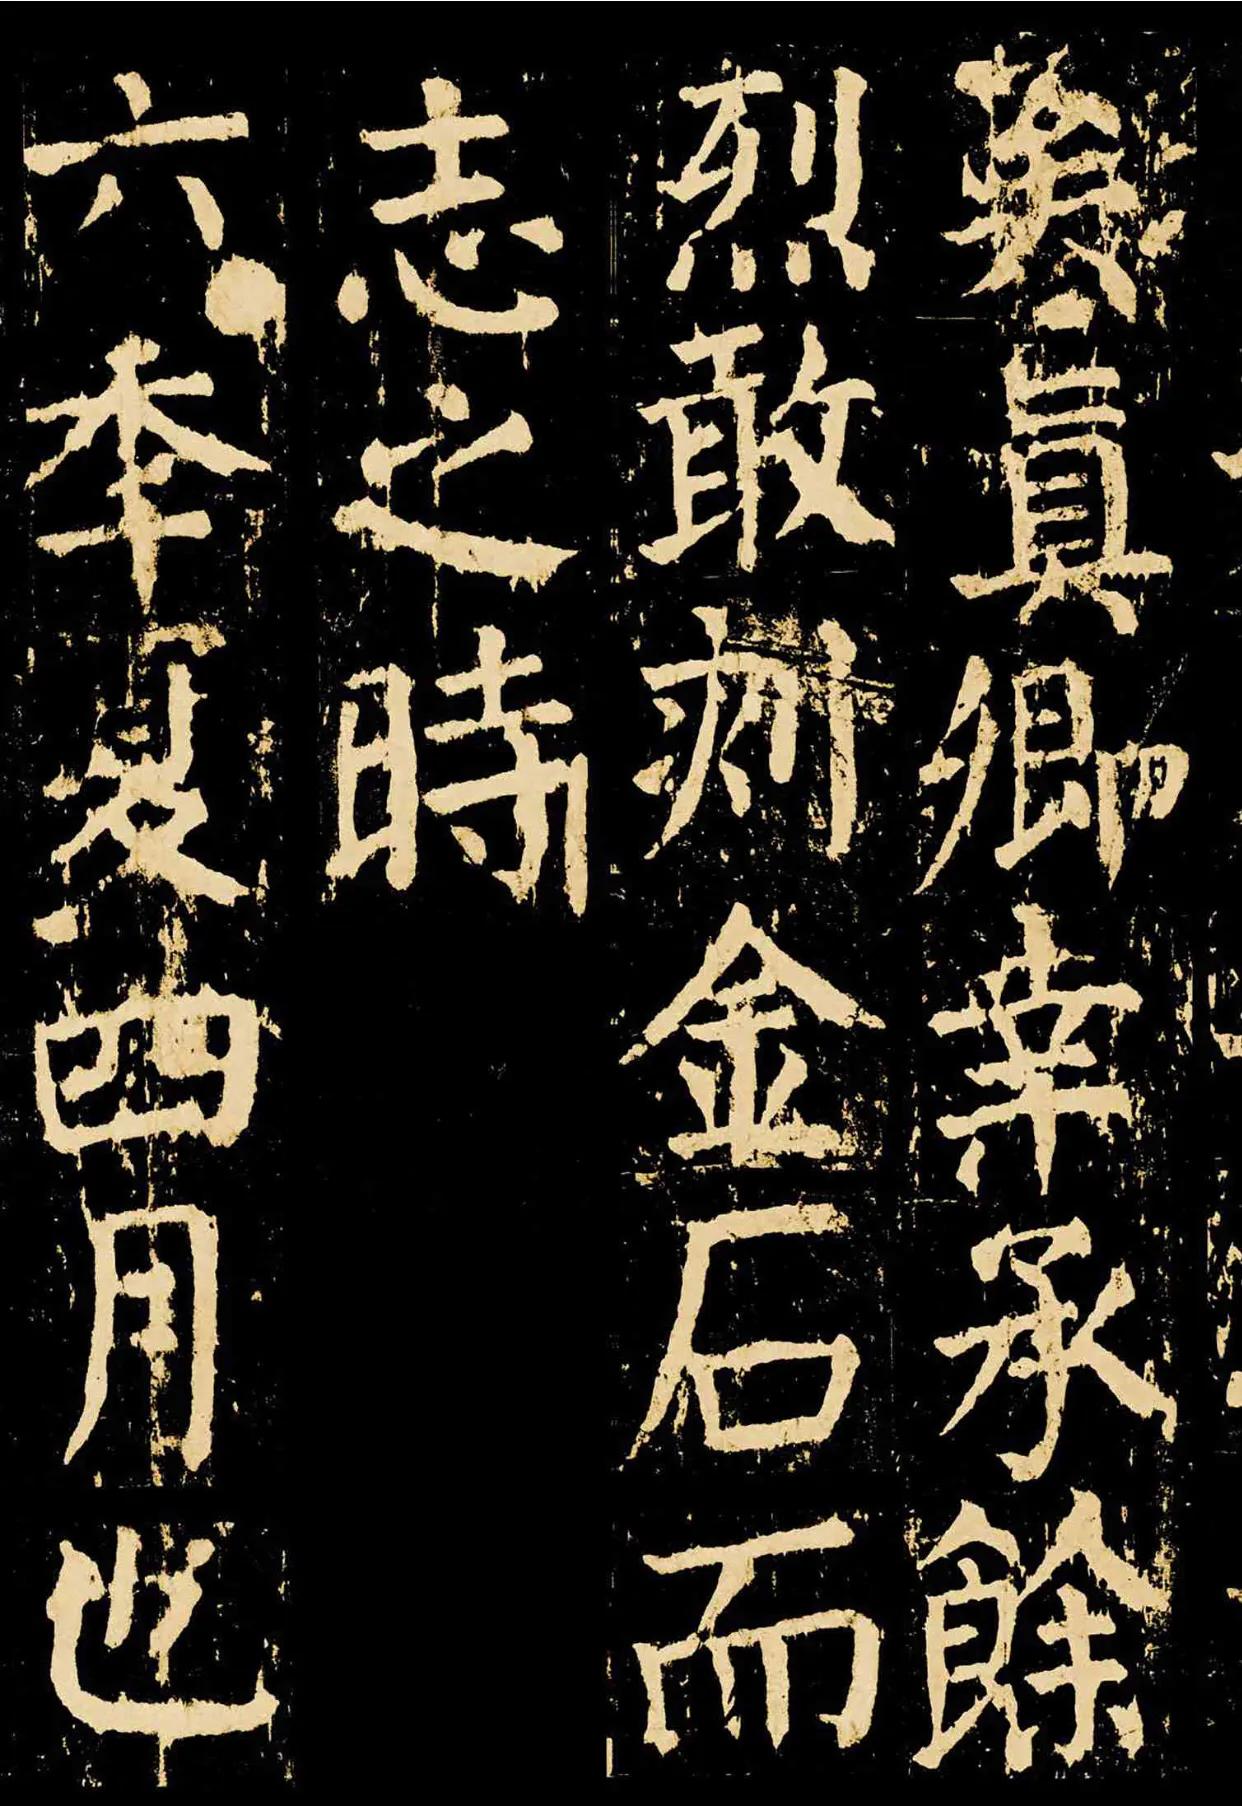 矣真卿幸承餘
烈敢刋金石而
志之時
六秊夏四月也